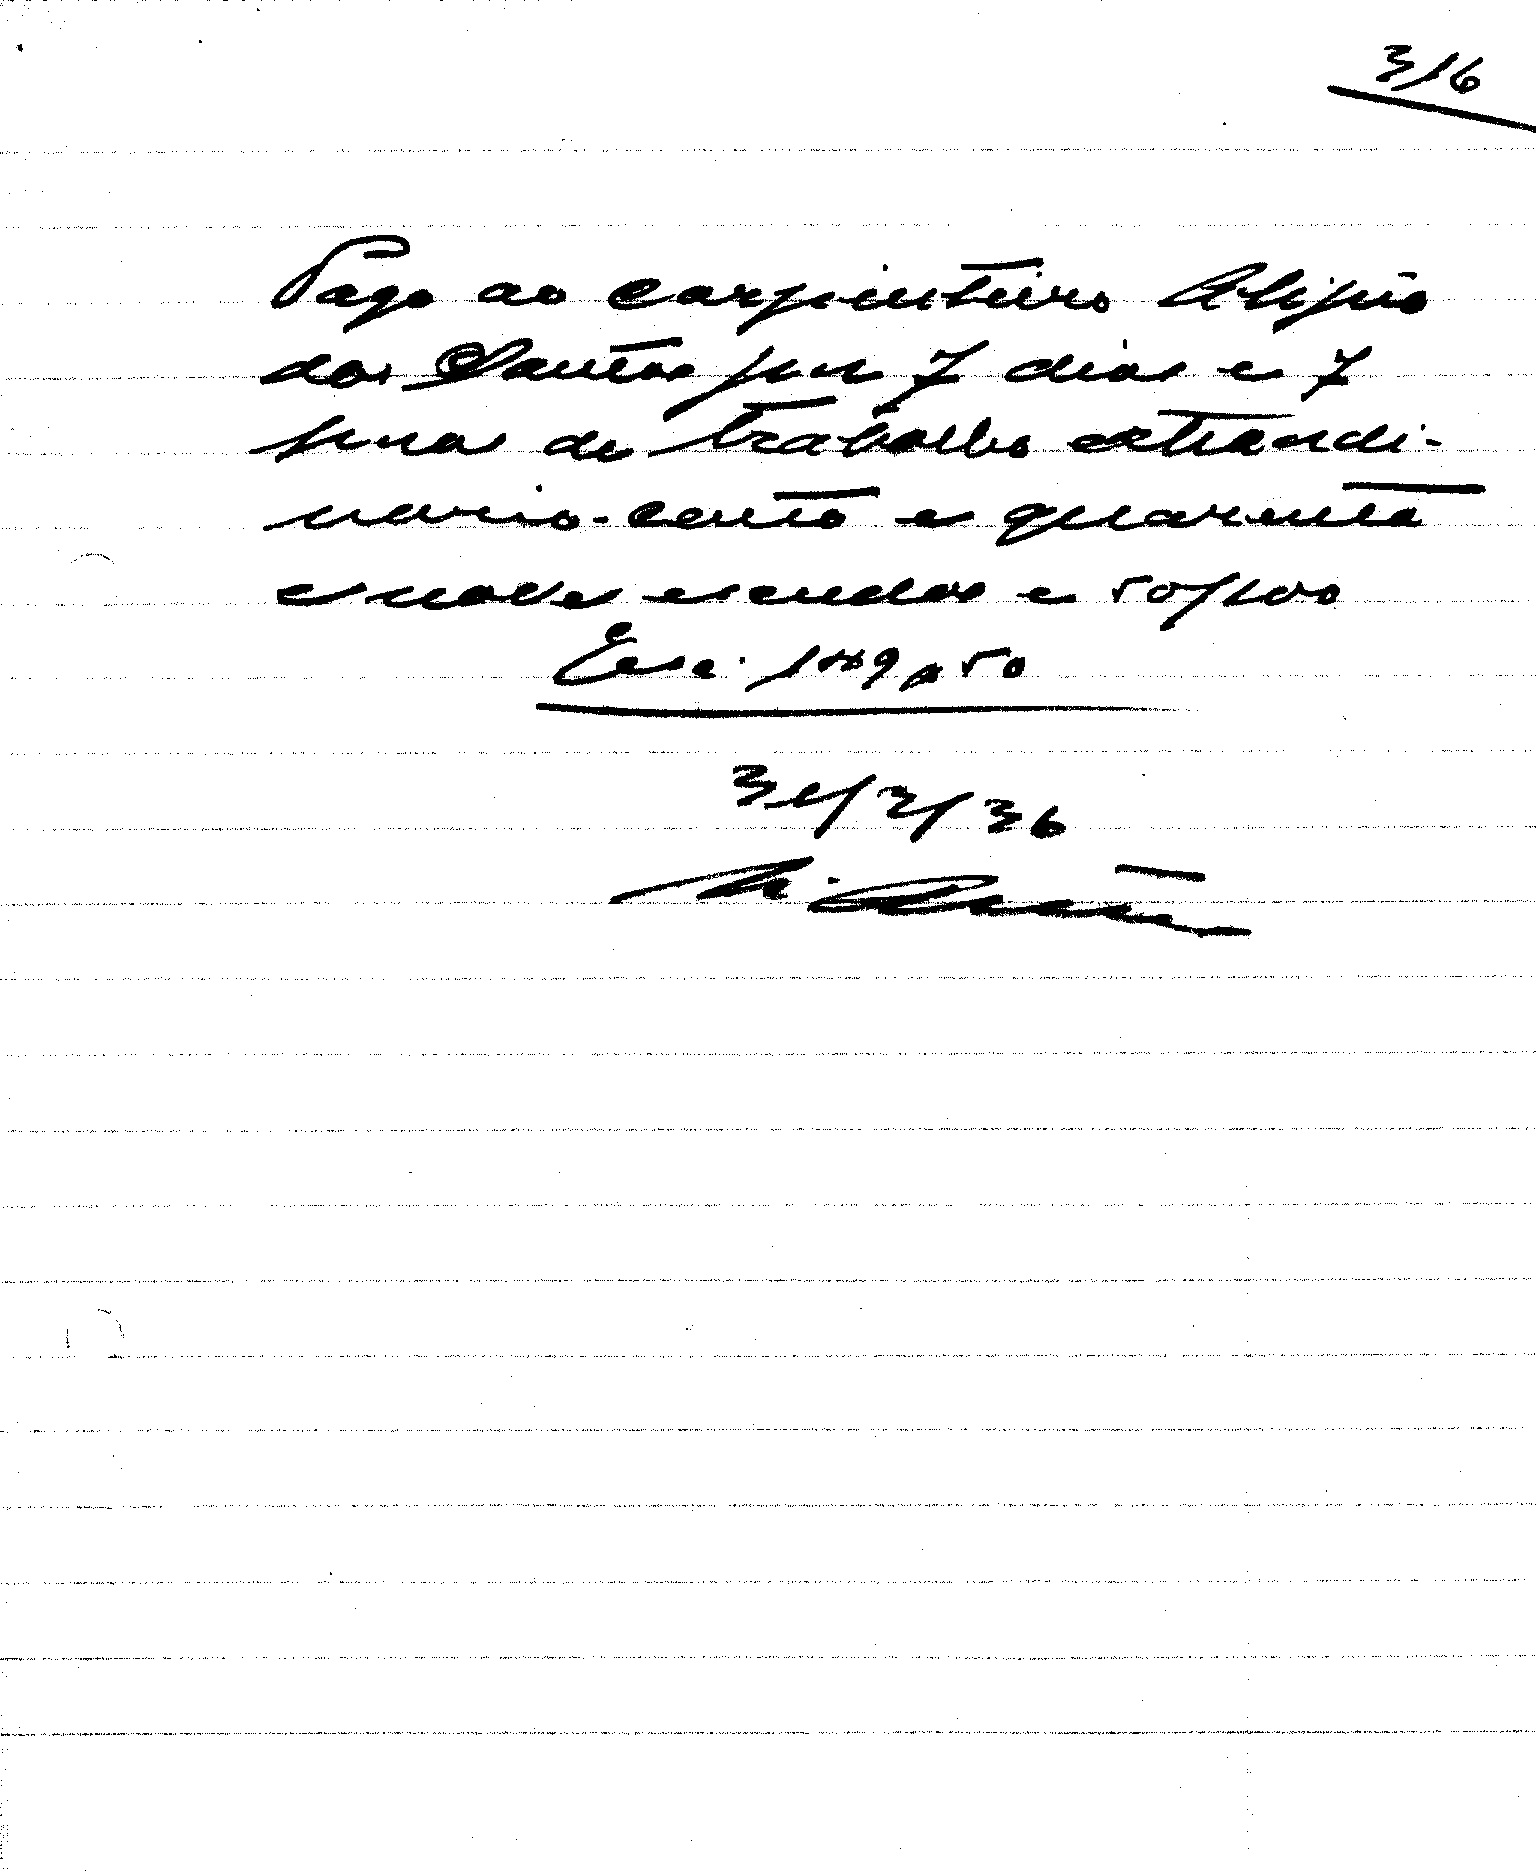 316
Pago ao carpinteiro Alipio
dos Santos por 7 dias e 7
horas de trabalho extraordi-
nario - cento e quarenta
e nove escudos e 50/100
Esc. 149$50
31/3/36